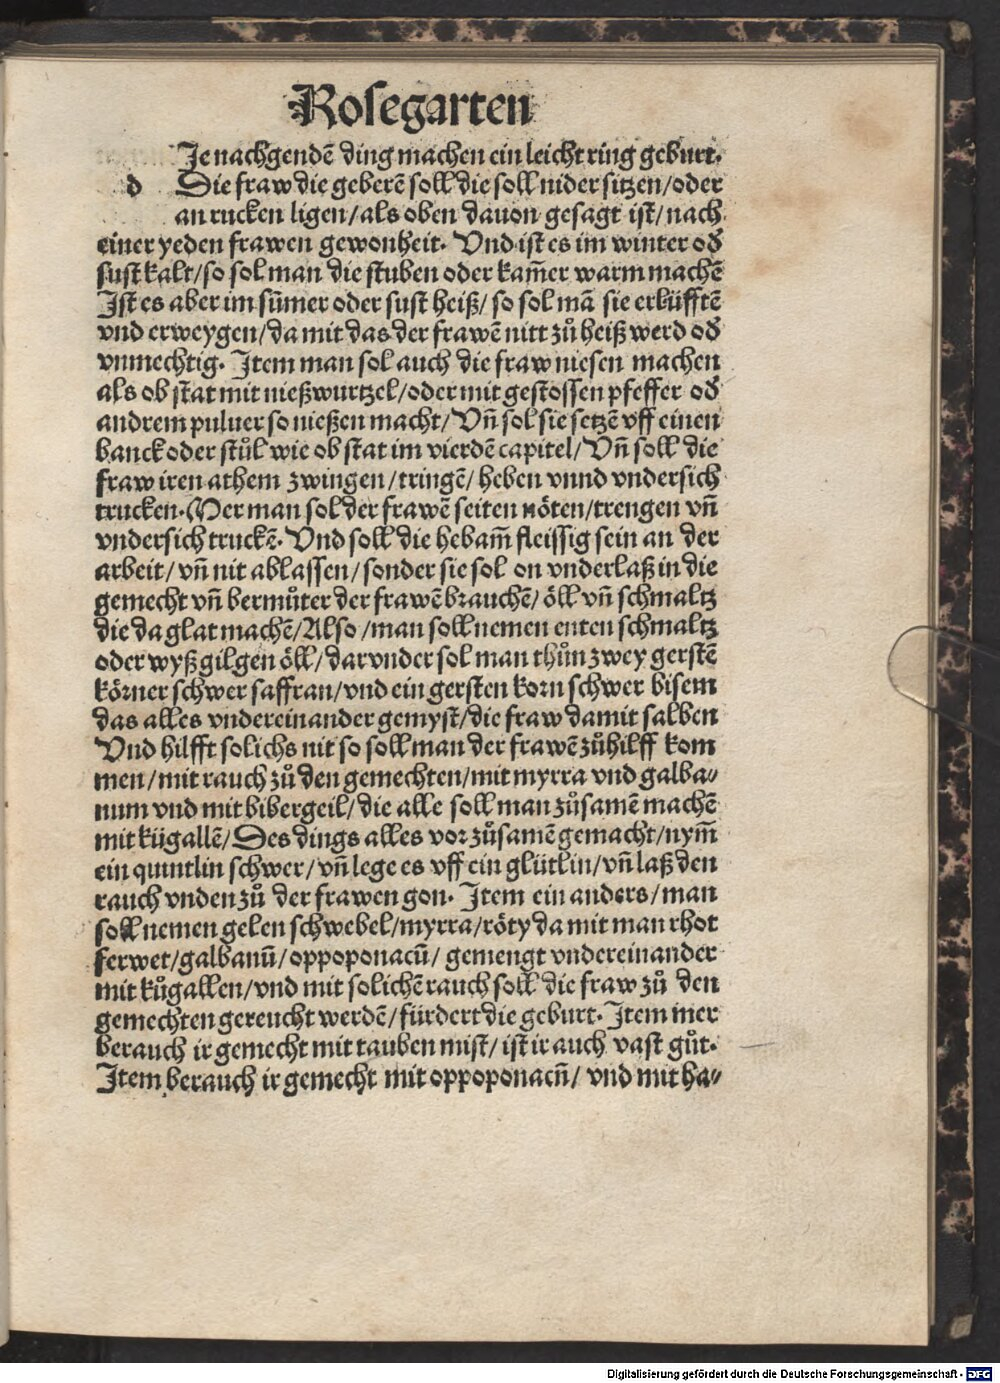 Rosegarten
Je nachgendẽ ding machen ein leicht ring geburt.
d Die fraw die geberẽ soll die soll nider sitzen/oder
an rucken ligen/als oben dauon gesagt ist/nach
einer yeden frawen gewonheit. Vnd ist es im winter oď
sust kalt/so sol man die stuben oder kam̃er warm machẽ
Ist es aber im sũmer oder sust heiß/so sol mã sie erlüfftẽ
vnd erweygen/da mit das der frawẽ nitt zů heiß werd oď
vnmechtig. Item man sol auch die fraw niesen machen
als ob stat mit nießwurtzel/oder mit gestossen pfeffer oď
andrem puluer so nießen macht/Vñ sol sie setzẽ vff einen
banck oder stůl wie ob stat im vierdẽ capitel/Vñ soll die
fraw iren athem zwingen/tringẽ/heben vnnd vndersich
trucken. Mer man sol der frawẽ seiten nöten/trengen vñ
vndersich truckẽ. Vnd soll die hebam̃ fleissig sein an der
arbeit/vñ nit ablassen/sonder sie sol on vnderlaß in die
gemecht vñ bermůter der frawẽ brauchẽ/öll vñ schmaltz
die da glat machẽ/Also/man soll nemen enten schmaltz
oder wyß gilgen öll/darunder sol man thůn zwey gerstẽ
körner schwer saffran/vnd ein gersten korn schwer bisem
das alles vndereinander gemyst/die fraw damit salben
Vnd hilfft solichs nit so soll man der frawẽ zůhilff kom
men/mit rauch zů den gemechten/mit myrra vnd galba⸗
num vnd mit bibergeil/die alle soll man zůsamẽ machẽ
mit kügallẽ/Des dings alles vor zůsamẽ gemacht/nym̃
ein quintlin schwer/vñ lege es vff ein glütlin/vñ laß den
rauch vnden zů der frawen gon. Item ein anders/man
soll nemen gelen schwebel/myrra/röty da mit man rhot
ferwet/galbanũ/oppoponacũ/gemengt vndereinander
mit kůgallen/vnd mit solichẽ rauch soll die fraw zů den
gemechten gereucht werdẽ/fürdert die geburt. Item mer
berauch ir gemecht mit tauben mist/ist ir auch vast gůt.
Item berauch ir gemecht mit oppoponacũ/vnd mit ha⸗
Digitalisierung gefördert durch die Deutsche Forschungsgemeinschaft - DFG